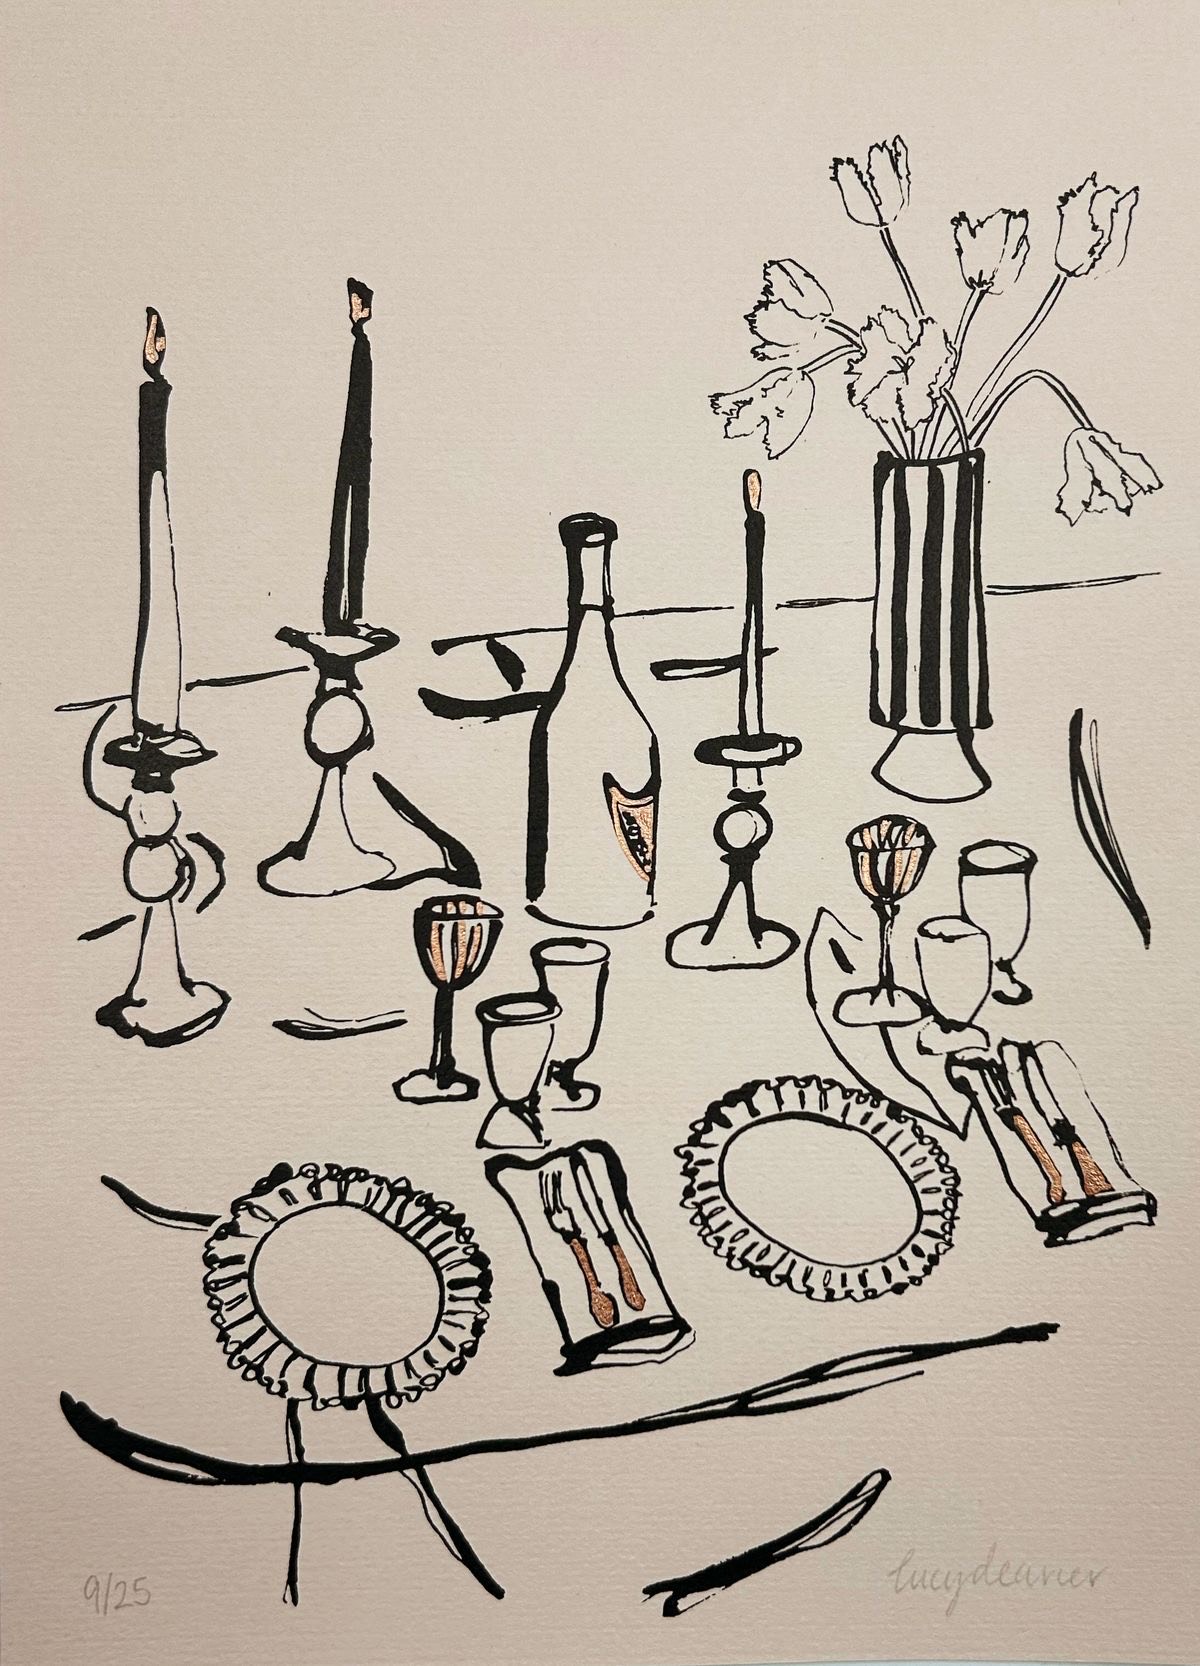 9/25
lucydeaner